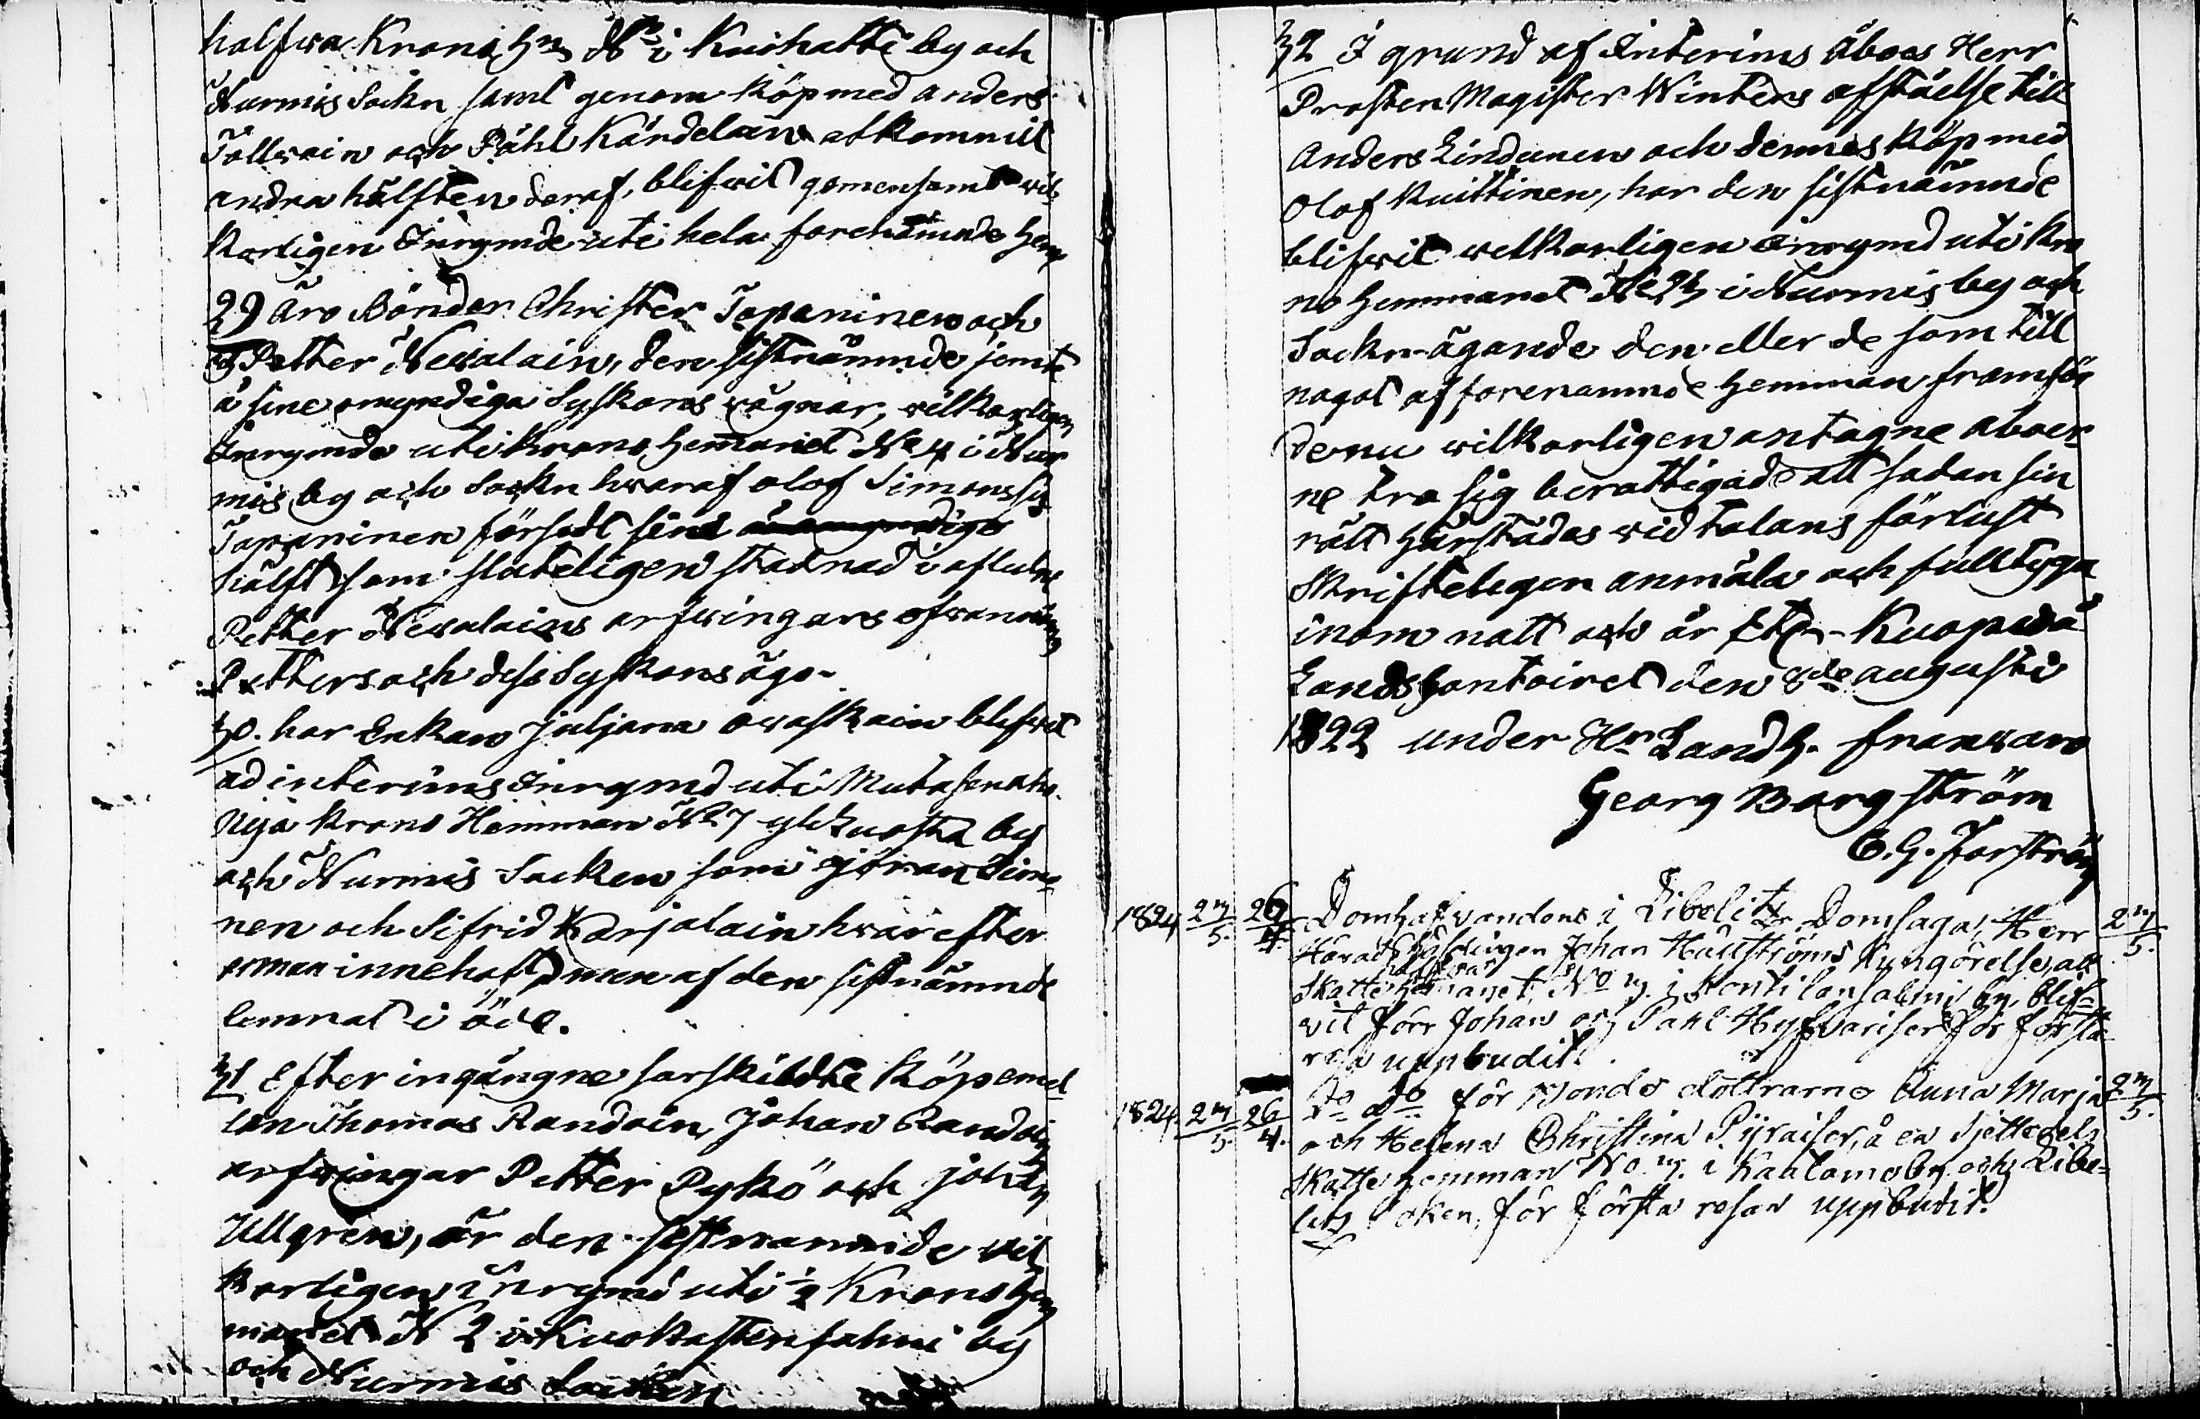 halfwa Krono Hn № i Kuihatti by och
Nurmis Sockn samt genom Köp med Anders
Tollwain och Påhl Kärdelain åtkommit
andra hälften deraf, blifwit gemensamt wil
korligen Inrymde uti hela förenämnde Hem
29 Äro Bönder Christer Tapaninen och
Petter Newalain, den sistnämnde jemte
å sine omyndiga Syskons wägnar, wilkorligen
Inrymde uti Krono Hemanet № 4 i Nur
mis by och Sockn hwaraf Olof Simonsson
Tapaninen försålt sine å omyndiga
hälft som sluteligen stadnad i aflidne
Petter Newalains arfwingars ofwannämnde
Petters och dess Syskons ägo.
30. har Enkan Juljana Ovaskain blifwit
ad interims Inrymd uti Mutasenaho
Nija Krono Hemman № 7 yli by
och Nurmis Socken som Göran Timo
nen och Sifrid Karjalain hwar efter
annan innehaft men af den sistnämnde
lemnat i öde.
31 Efter ingångne särskildte Köp emel
lan Thomas Randain, Johan Randain
arfwingar Petter Pykö och Johan
Ullgren, är den sistnämnde wil
korligen inrymd uti ½ Krono Hem
manet № 2 i Kuokastensalmi by
och Nurmis Socken
32 I grund af Interims åboes Herr
Prosten Magister Winters afståelse till
Anders Lindunen och dennes Köp med
Olof Kuittinen, har den sistnämnde
blifwit wilkorligen inrymd uti Kro
no Hemmanet № 23 i Nurmis by och
Sockn ägande den eller de som till
nagot af förenamnde Hemman framför
de nu wilkorligen antagne åboer
ne tro sig berättigade att sådan sin
rätt härstädes wid talans förlust
Skriftelegen anmäla och fulltyga
inom natt och år Etc. Kuopio å
Landskontoiret den 8de Augusti
1822 under Hr Landh. frånvaro
Georg Bergström
C. G. Forström
1824 23/5. 26/4. Domhafwandens i Libelitz Domsaga, Herr 23/5.
Häradshöfdingen Johan Hällströms Kungörelse, att
halfwa
Skattehemanet, No 13. i Kontilansalmi by, blif-
vit förr Johan och Pahl Hyfvariser för första
resa uppbudit.
1824 23/5 26/4. Do Do för Bonde dottrarna Anna Marja 23/5.
och Helena Christina Pijraiser, å en Sjettedels
Skatte hemman No 13. i Kaatamo by och Libe-
litz Soken, för första resan uppbudit.